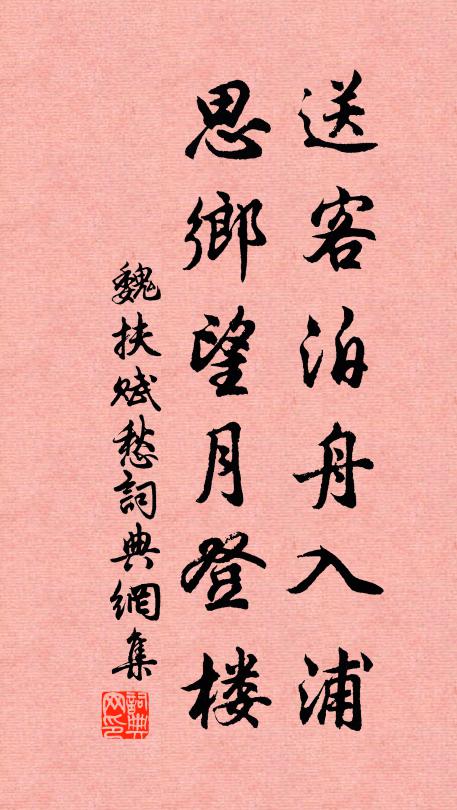 送客泊舟入浦
思鄉望月登楼
魏扶赋愁詞典網集
詞典网印